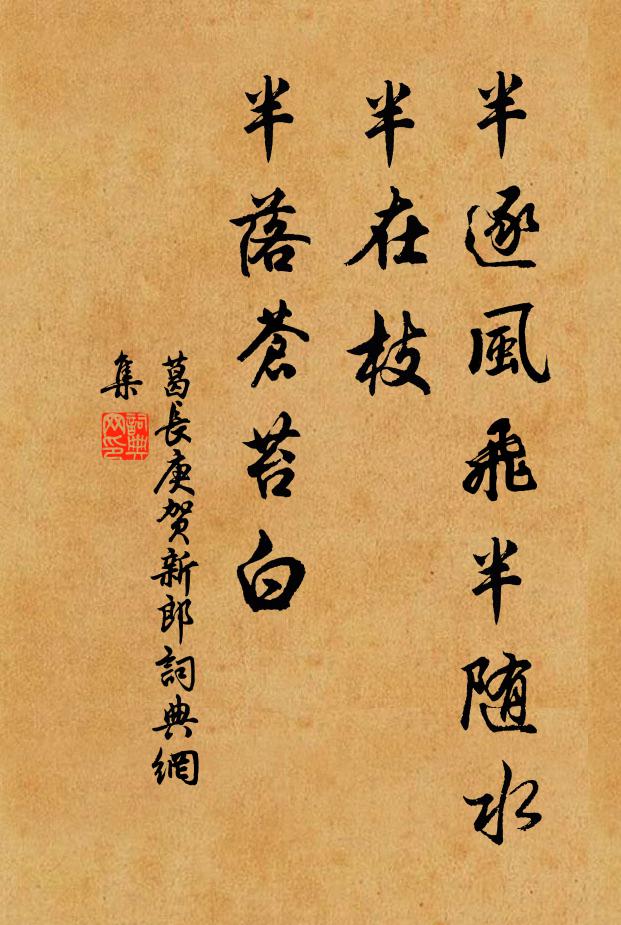 半逐風飛半随水
半在枝
半落蒼苔白
葛長庚賀新郎詞典網
集
詞典网印